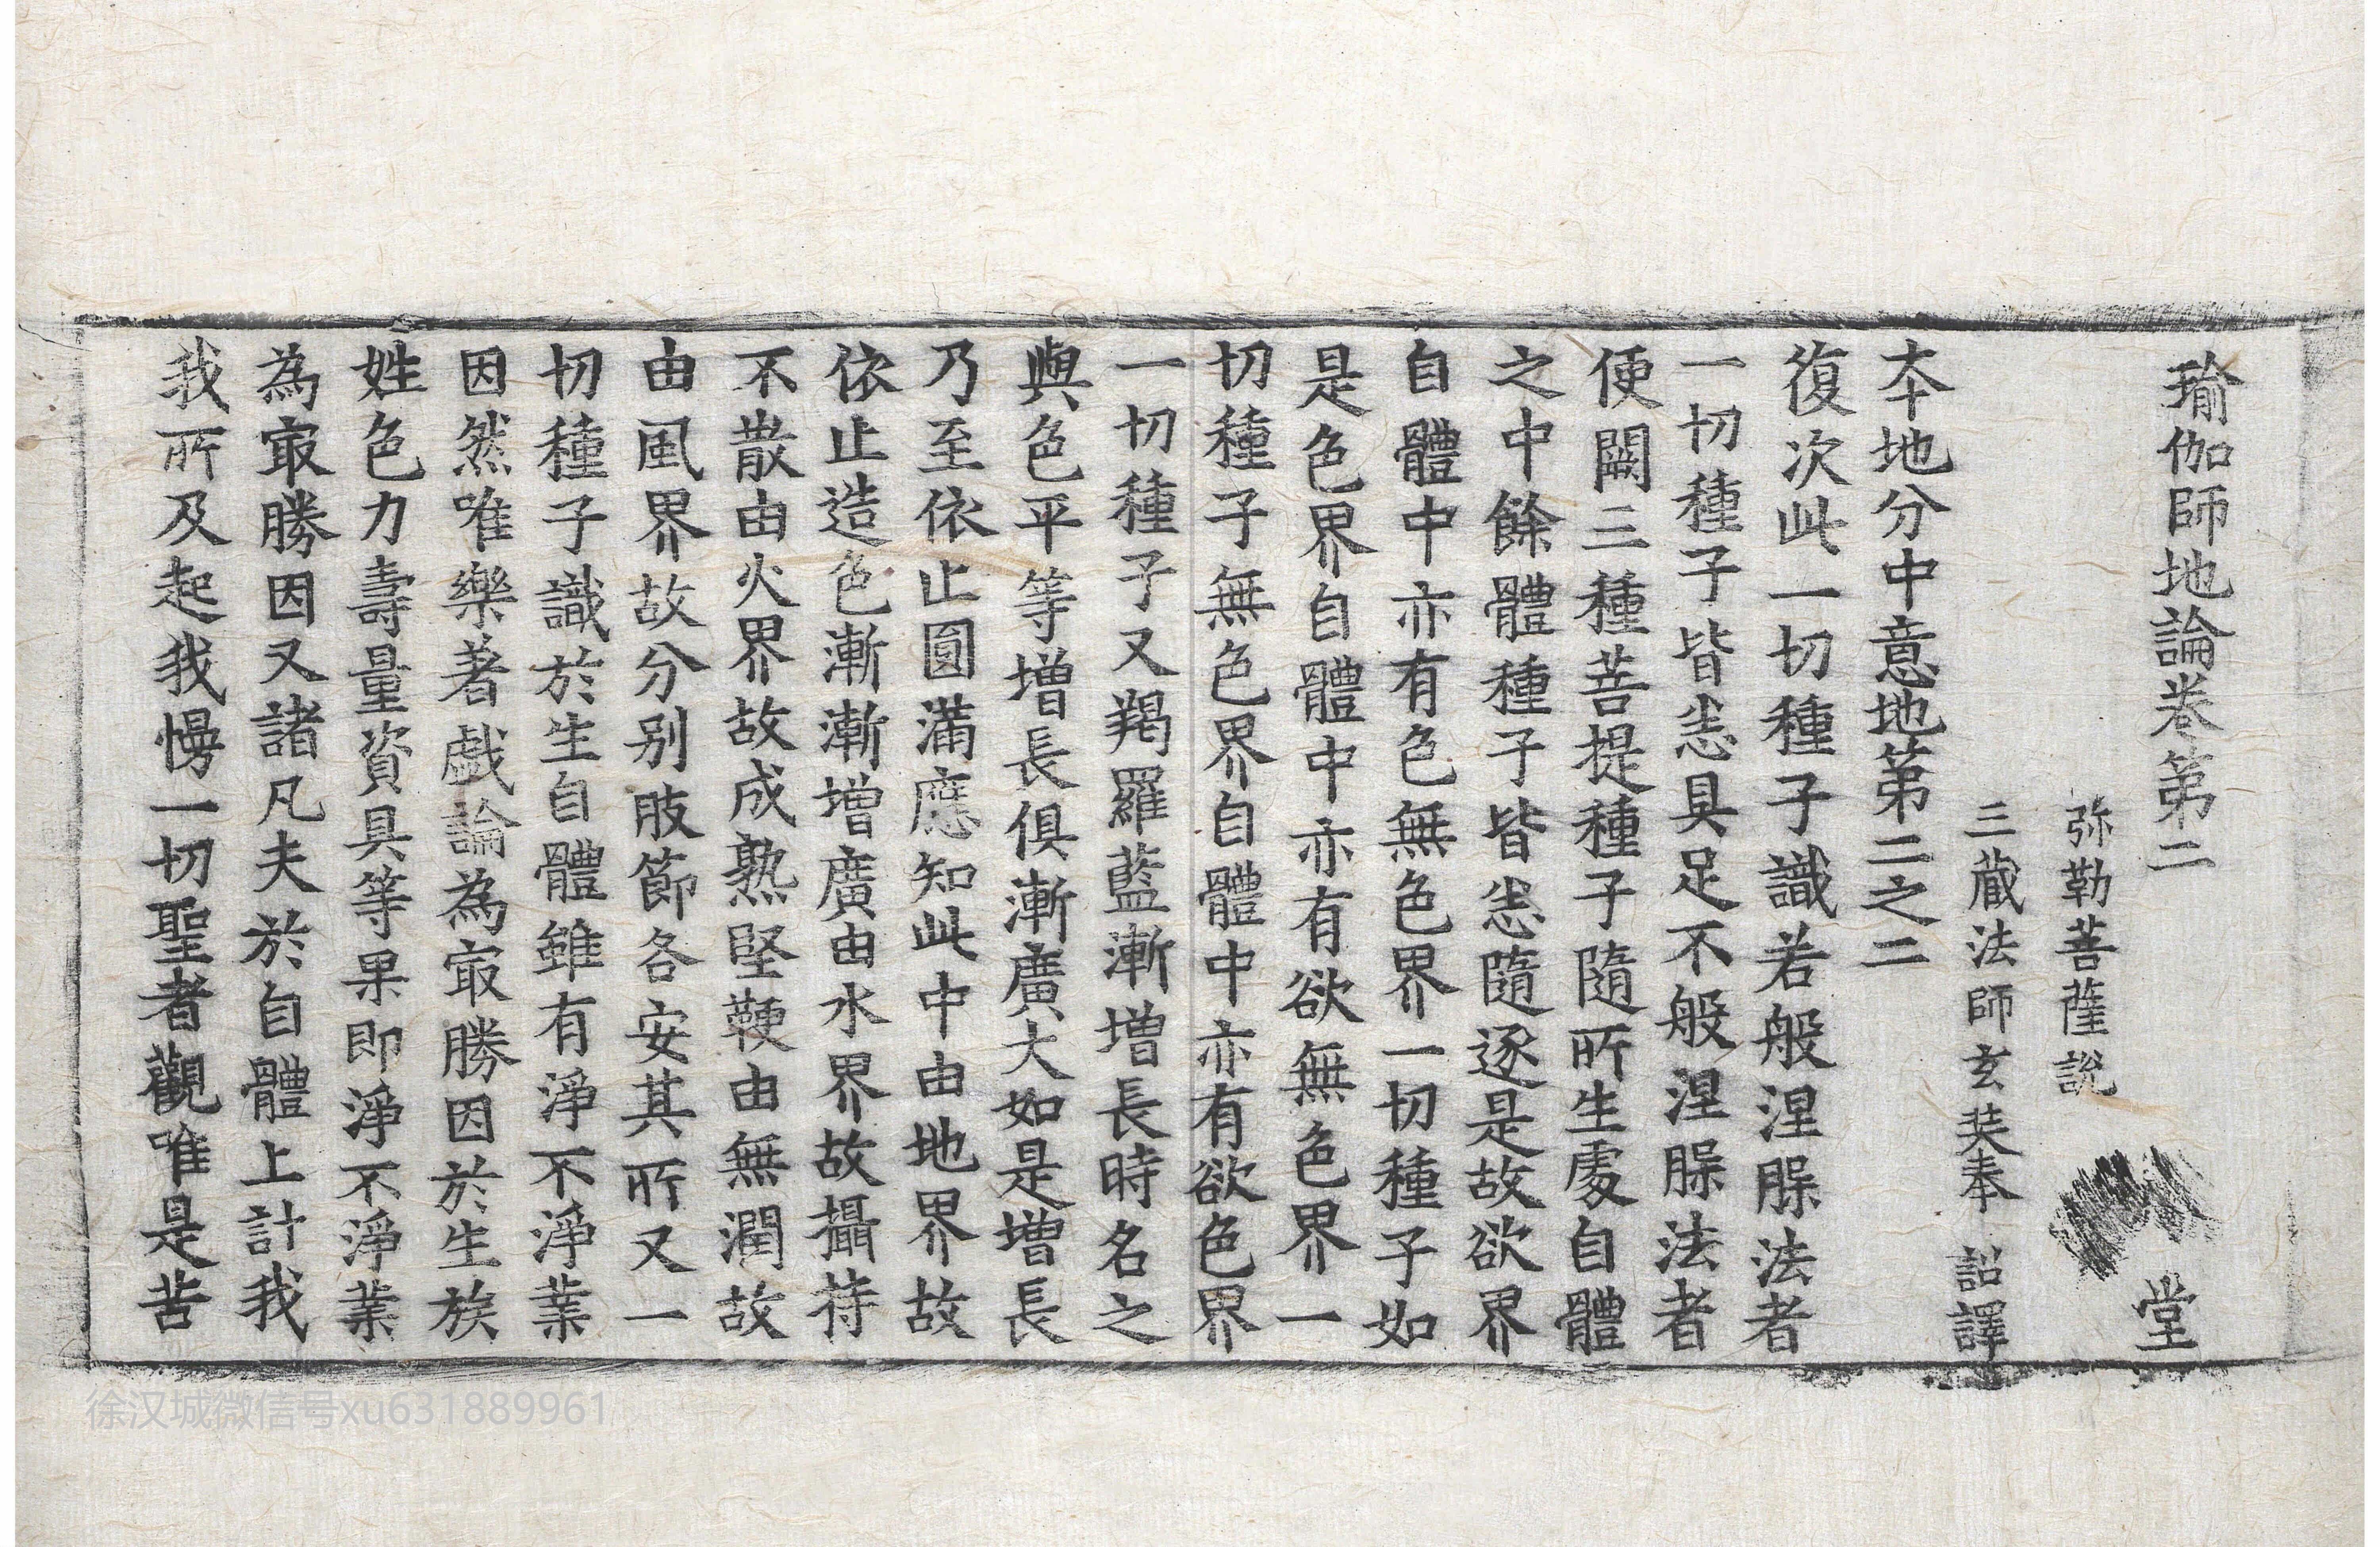 瑜伽師地論卷第二
堂
弥勒菩薩說
三藏法師玄奘奉 詔譯
本地分中意地第二之二
復次此一切種子識若般涅槃法者
一切種子皆悉具足不般涅槃法者
便闕三種菩提種子隨所生處自體
之中餘體種子皆悉隨逐是故欲界
自體中亦有色無色界一切種子如
是色界自體中亦有欲無色界一
切種子無色界自體中亦有欲色界
一切種子又羯羅藍漸增長時名之
與色平等增長俱漸廣大如是增長
乃至依止圓滿應知此中由地界故
依止造色漸漸增廣由水界故攝持
不散由火界故成熟堅鞕由無潤故
由風界故分别肢節各安其所又一
切種子識於生自體雖有淨不淨業
因然唯樂著戲論為㝡勝因於生族
姓色力壽量資具等果即淨不淨業
為㝡勝因又諸凡夫於自體上計我
我所及起我慢一切聖者觀唯是苦
徐汉城微信号xu631889961